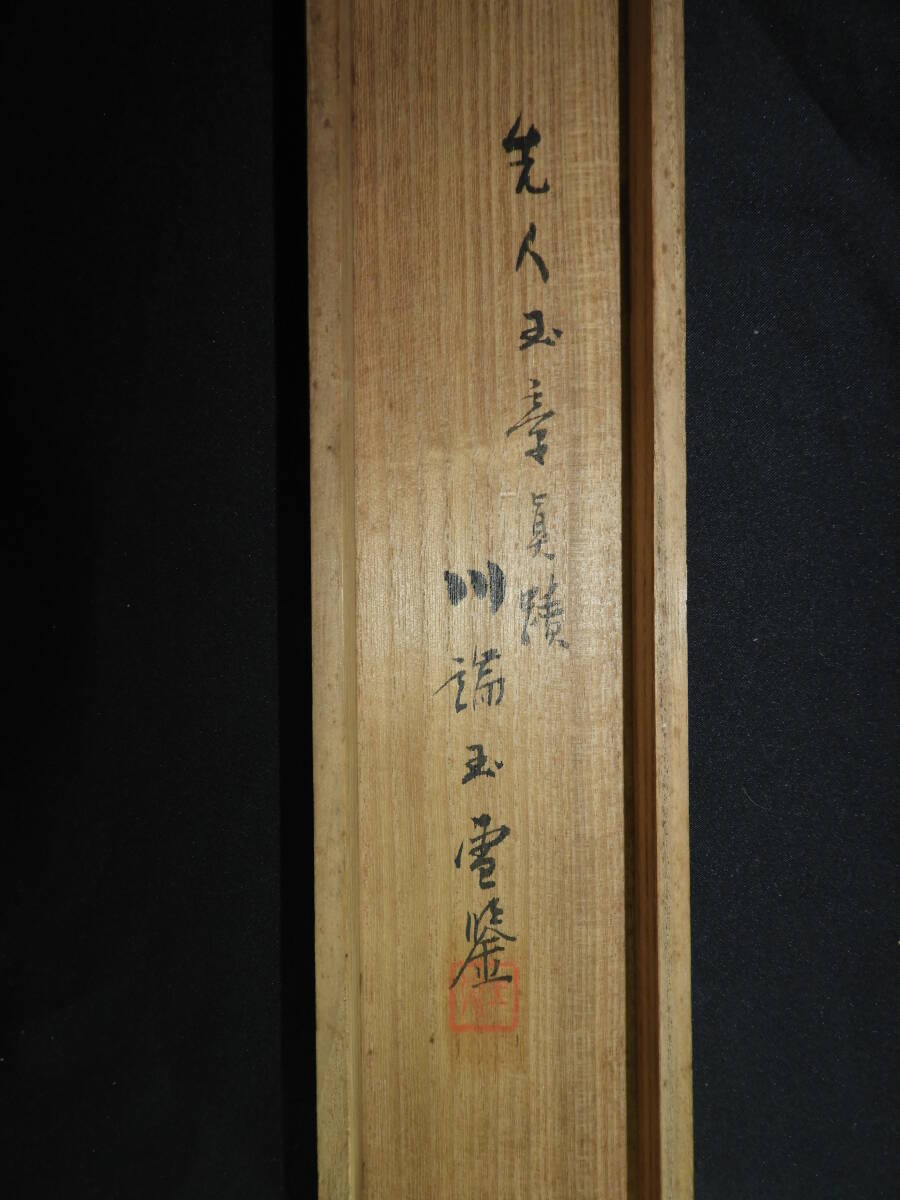 先人玉章眞蹟
川端玉雪鑒